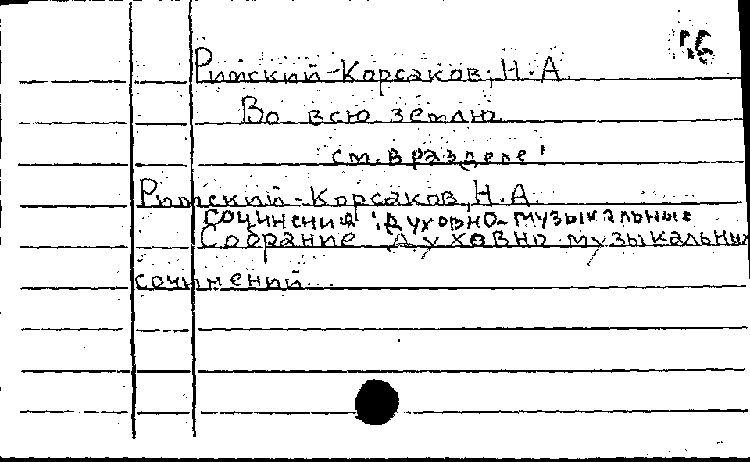 Римский-Корсаков, Н.А.
Во всю землю
см. в разделе:
Римский-Корсаков, Н.А.
Сочинения духовно-музыкальные
Собрание духовно-музыкальных
сочинений.